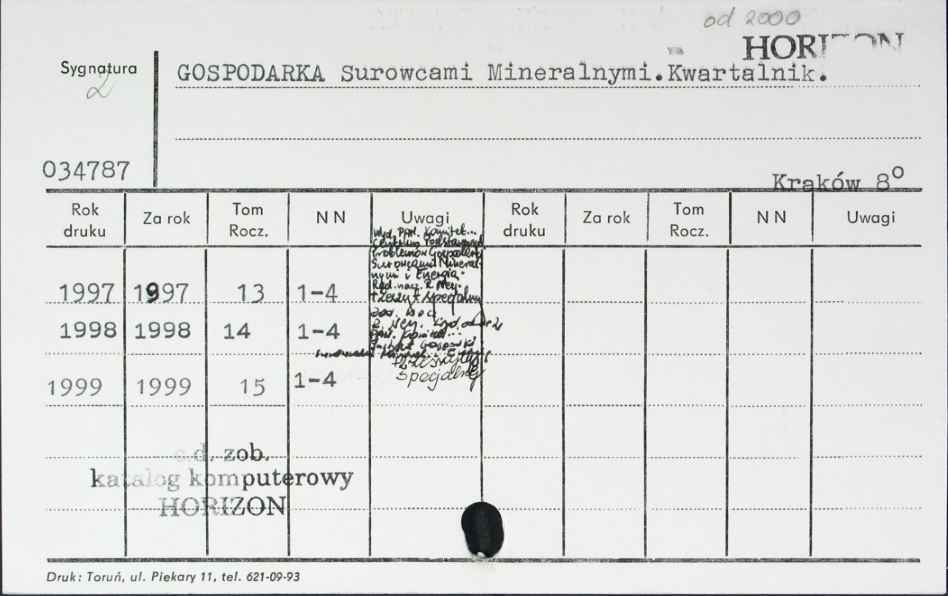 od 2000
HORIZON
Sygnatura
2
GOSPODARKA Surowcami Mineralnymi.Kwartalnik.
034787
Kraków 8°
Rok druku Za rok Tom Rocz. N N Uwagi Rok druku Za rok Tom Rocz. N N Uwagi
Wyd. PAN. Komitet...
Problemów Gospodarki
Surowcami Mineral-
nymi i Energią.
Red. nacz. R. Ney.
+ Zeszyt specjalny
1997 1997 13 1-4
1998 1998 14 1-4
R. Ney.
+ Zeszyt
specjalny
1999 1999 15 1-4
c.d. zob.
katalog komputerowy
HORIZON
Druk: Toruń, ul. Piekary 11, tel. 621-09-93